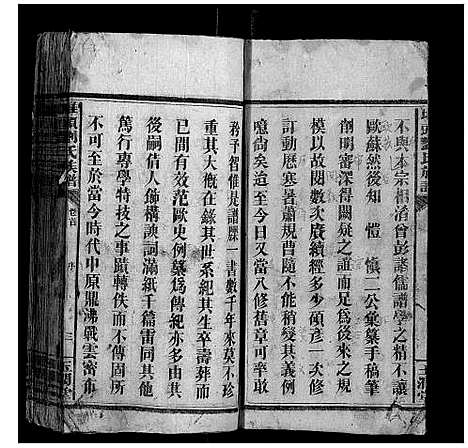 不與本宗相淆曾彭諸儒譜學之精不讓
歐蘇然後知 愷 慎二公彙纂手稿筆
削明審深得闕疑之誼而足為後來之規
模以故閱數次廣續經多少碩彥一次修
訂動歷寒暑蕭規曹隨不能稍變其義例
噫尚矣迨至今日又當八修舊章可率敢
矜予智惟是譜牒一書數千年來莫不珍
重其大概在錄其世系紀其生卒壽葬而
已間有效范歐史例纂為傳紀亦多由其
後嗣倩人飾構諛詞滿紙千篇雷同其他
篤行專學特技之事蹟轉佚而不傳固所
不可至於當今時代中原鼎沸戰雲密布
氏族譜
卷首
序
三
玉潤堂